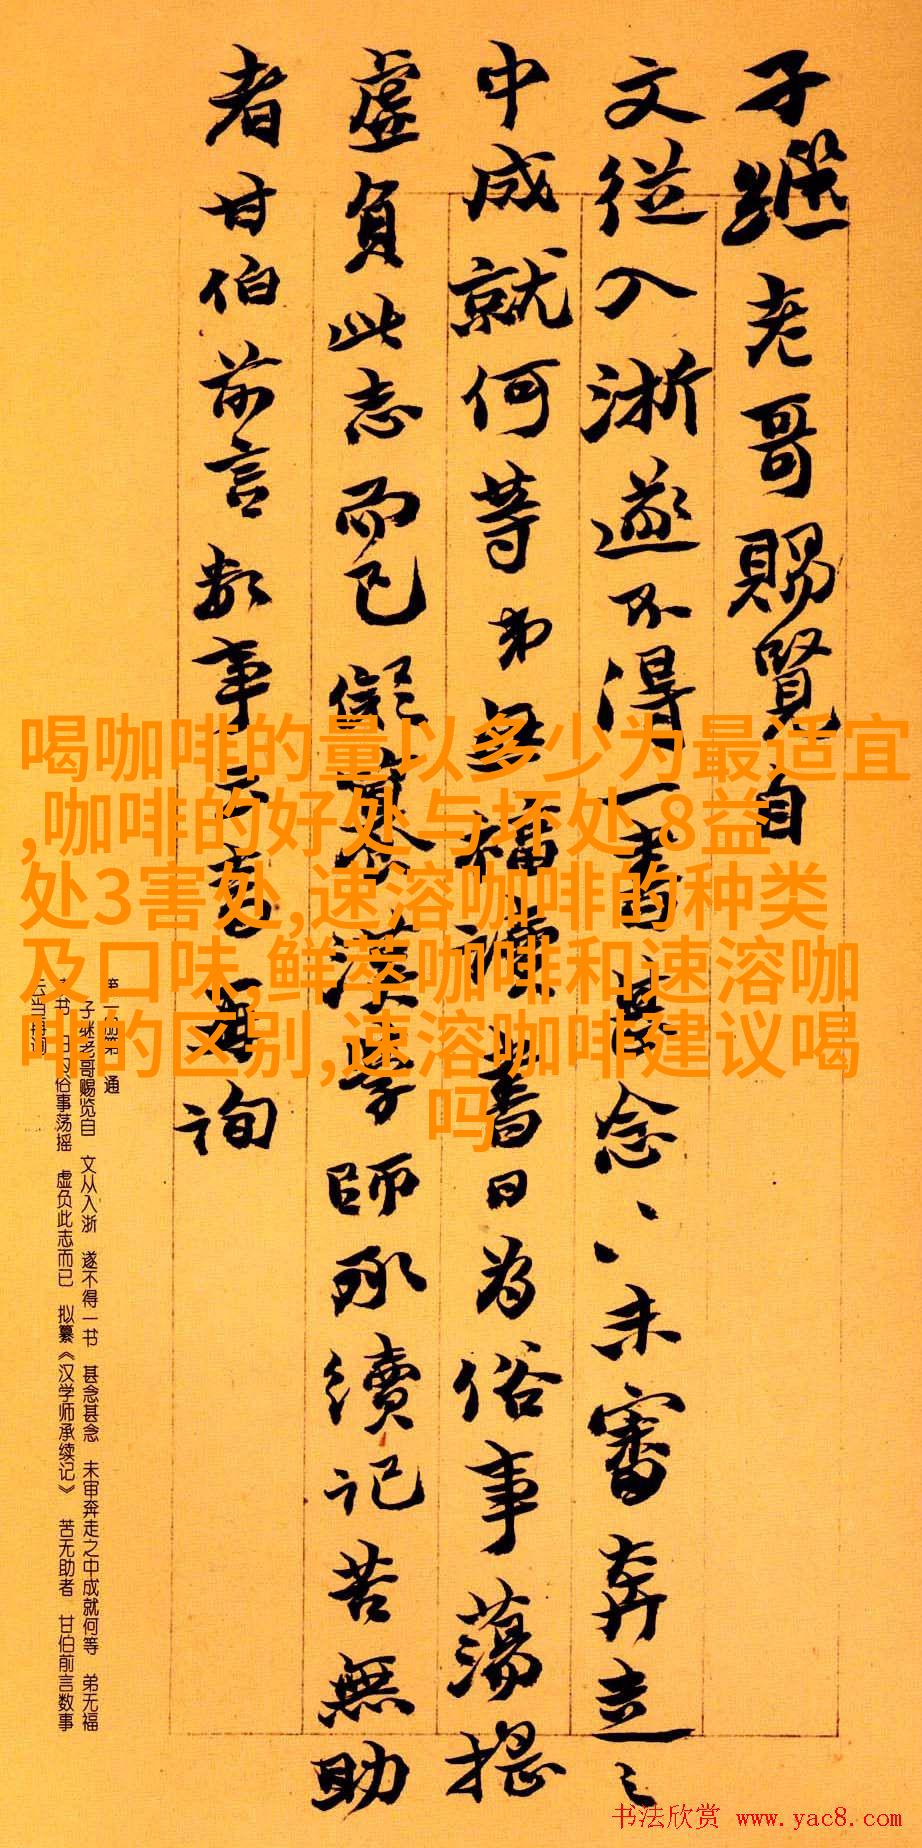 子继老哥賜覽自
文從入浙遂不得一書甚念〻未審奔走之
中成就何等弟無福讀書日為俗事蕩摇
虛負此志而已擬纂漢學師承續記苦無助
者甘伯前言數事云當再詢
喝咖啡的量以多少为最适宜
,咖啡的好处与坏处 8益
处3害处,速溶咖啡的种类
及口味,鲜萃咖啡和速溶咖
啡的区别,速溶咖啡建议喝
吗
第一册第 通
子继老哥赐览自 文从入浙 遂不得一书 甚念甚念 未审奔走之中成就何等 弟无福
书 日为俗事荡摇 虚负此志而已 拟纂《汉学师承续记》 苦无助者 甘伯前言数事
云当再询
书法欣赏 www.yac8.com